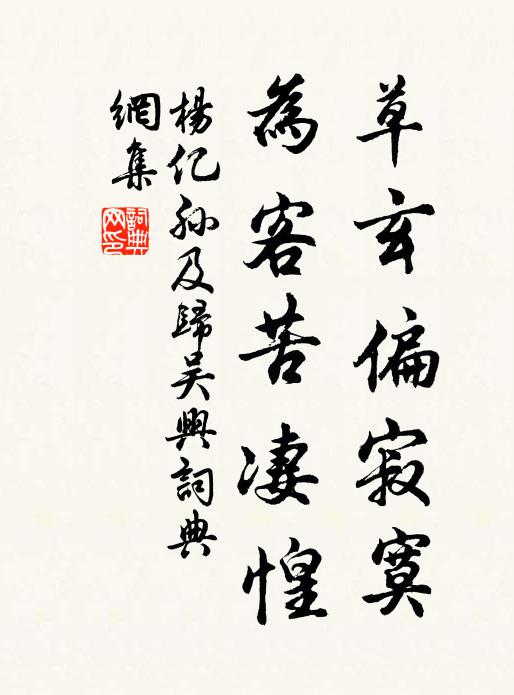 草玄偏寂寞
為客苦凄惶
楊仡孙及歸吴興詞典
網集
詞典
网印